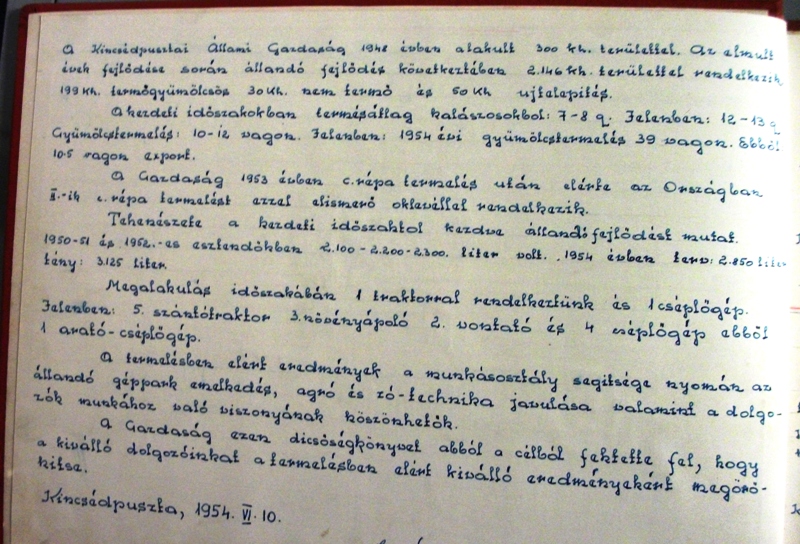 A Kincsédpusztai Állami Gazdaság 1948 évben alakult 300 kh. területtel. Az elmult
évek fejlődése során állandó fejlődés következtében 2.146 kh. területtel rendelkezik,
199 kh. termőgyümölcsös 30 kh. nem termő és 50 kh ujtelepités.
A kezdeti időszakokban termésátlag kalászosokbol: 7-8 q. Jelenben: 12-13 q
Gyümölcstermelés: 10-12 vagon. Jelenben: 1954 évi gyümölcstermelés 39 vagon. Ebből
10.5 vagon export.
A Gazdaság 1953 évben c.répa termelés után elérte az Országban
II.-ik c.répa termelést ezzel elismerő oklevéllel rendelkezik.
Tehenészete a kezdeti időszaktol kezdve állandó fejlődést mutat.
1950-51 és 1952.-es esztendőkben 2.100-2.200-2.300. liter volt. 1954 évben terv: 2.850 liter
tény: 3.125 liter.
Megalakulás időszakában 1 traktorral rendelkeztünk és 1 cséplőgép.
Jelenben: 5. szántótraktor 3. növényápoló 2. vontató és 4 cséplőgép ebből
1 arató-cséplőgép.
A termelésben elért eredmények a munkásosztály segitsége nyomán az
állandó géppark emelkedés, agró és zó-technika javulása valamint a dolgo-
zók munkához való viszonyának köszönhetők.
A Gazdaság ezen dicsőségkönyvet abból a célból fektette fel, hogy
a kiválló dolgozóinkat a termelésben elért kiválló eredményekért megörö-
kitse.
Kincsédpuszta, 1954. VI. 10.